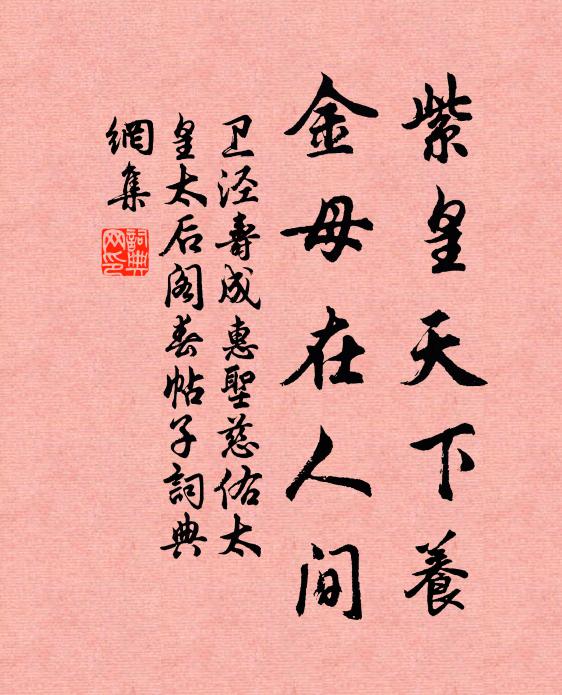 紫皇天下養
金母在人间
卫泾壽成惠聖慈佑太
皇太后阁春帖子詞典
網集
詞典网印